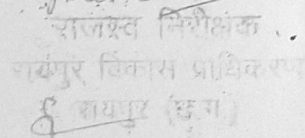 राजस्व निरीक्षक
रायपुर विकास प्राधिकरण
रायपुर (छ.ग.)